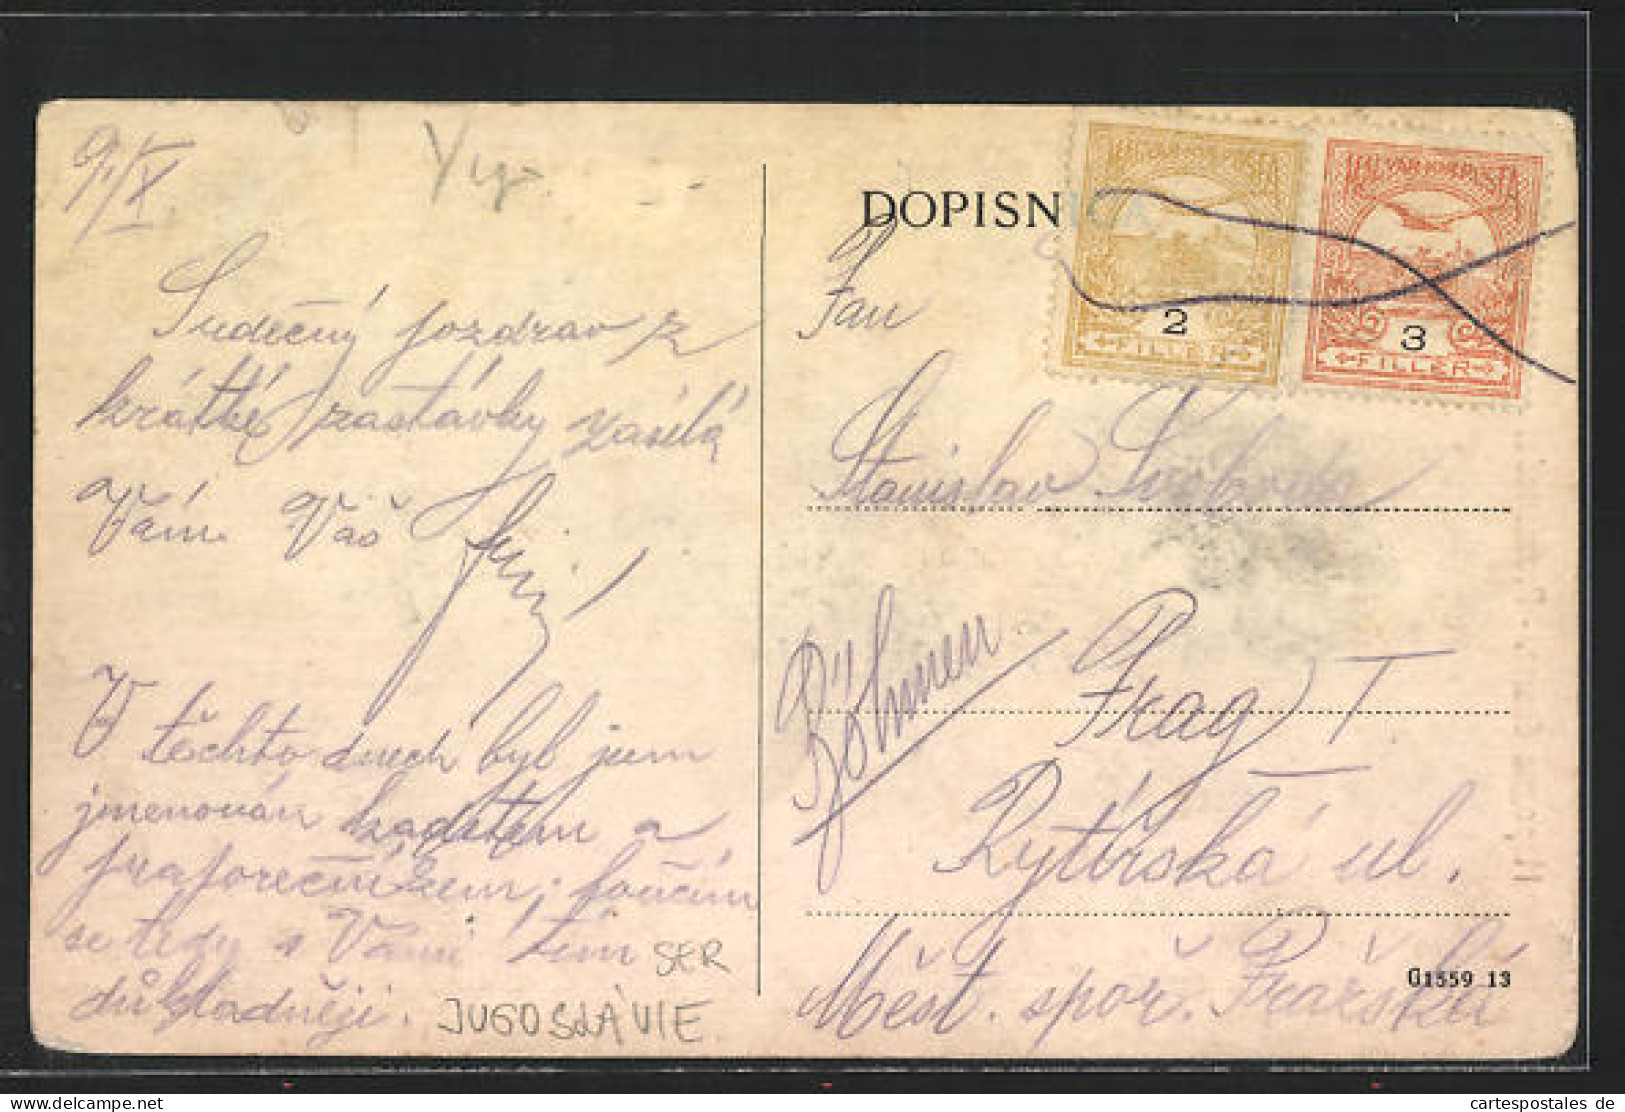 9./X.
Srdečný pozdrav z
krátké zastávky zasílá
Vám Váš
V těchto dnech byl jsem
jmenován kadetem a
praporečníkem, loučím
se tedy s Vámi tím
důkladněji.
SER
JUGOSLÁVIE
DOPISNICA
MAGYAR KIR. POSTA
2
FILLER
MAGYAR KIR. POSTA
3
FILLER
Pan
Stanislav Svoboda
Böhmen
Prag I.
Rytířská ul.
Měst. spoř. Pražská
G1559 13
cartespostales de